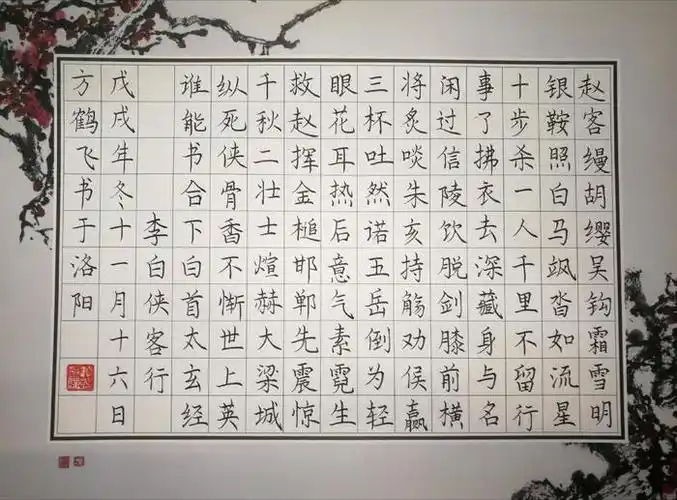 赵客缦胡缨吴钩霜雪明
银鞍照白马飒沓如流星
十步杀一人千里不留行
事了拂衣去深藏身与名
闲过信陵饮脱剑膝前横
将炙啖朱亥持觞劝侯嬴
三杯吐然诺五岳倒为轻
眼花耳热后意气素霓生
救赵挥金槌邯郸先震惊
千秋二壮士煊赫大梁城
纵死侠骨香不惭世上英
谁能书合下白首太玄经
李白侠客行
戊戌年冬十一月十六日
方鹤飞书于洛阳